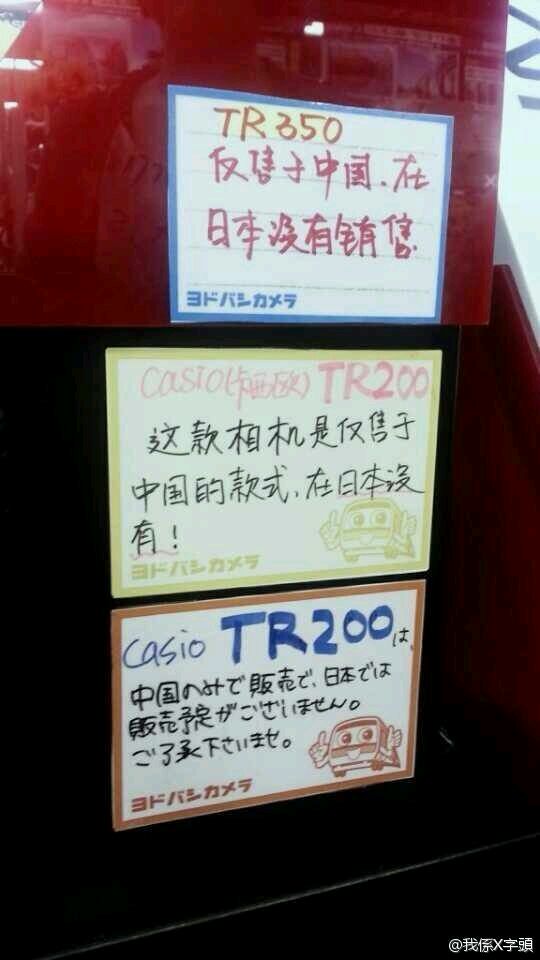 TR350
仅售于中国、在
日本没有销售
ヨドバシカメラ
casio(卡西欧) TR200
这款相机是仅售于
中国的款式、在日本没
有！
ヨドバシカメラ
casio TR200は、
中国のみで販売で、日本では
販売予定がございません。
ご了承下さいませ。
ヨドバシカメラ
@我係X字頭